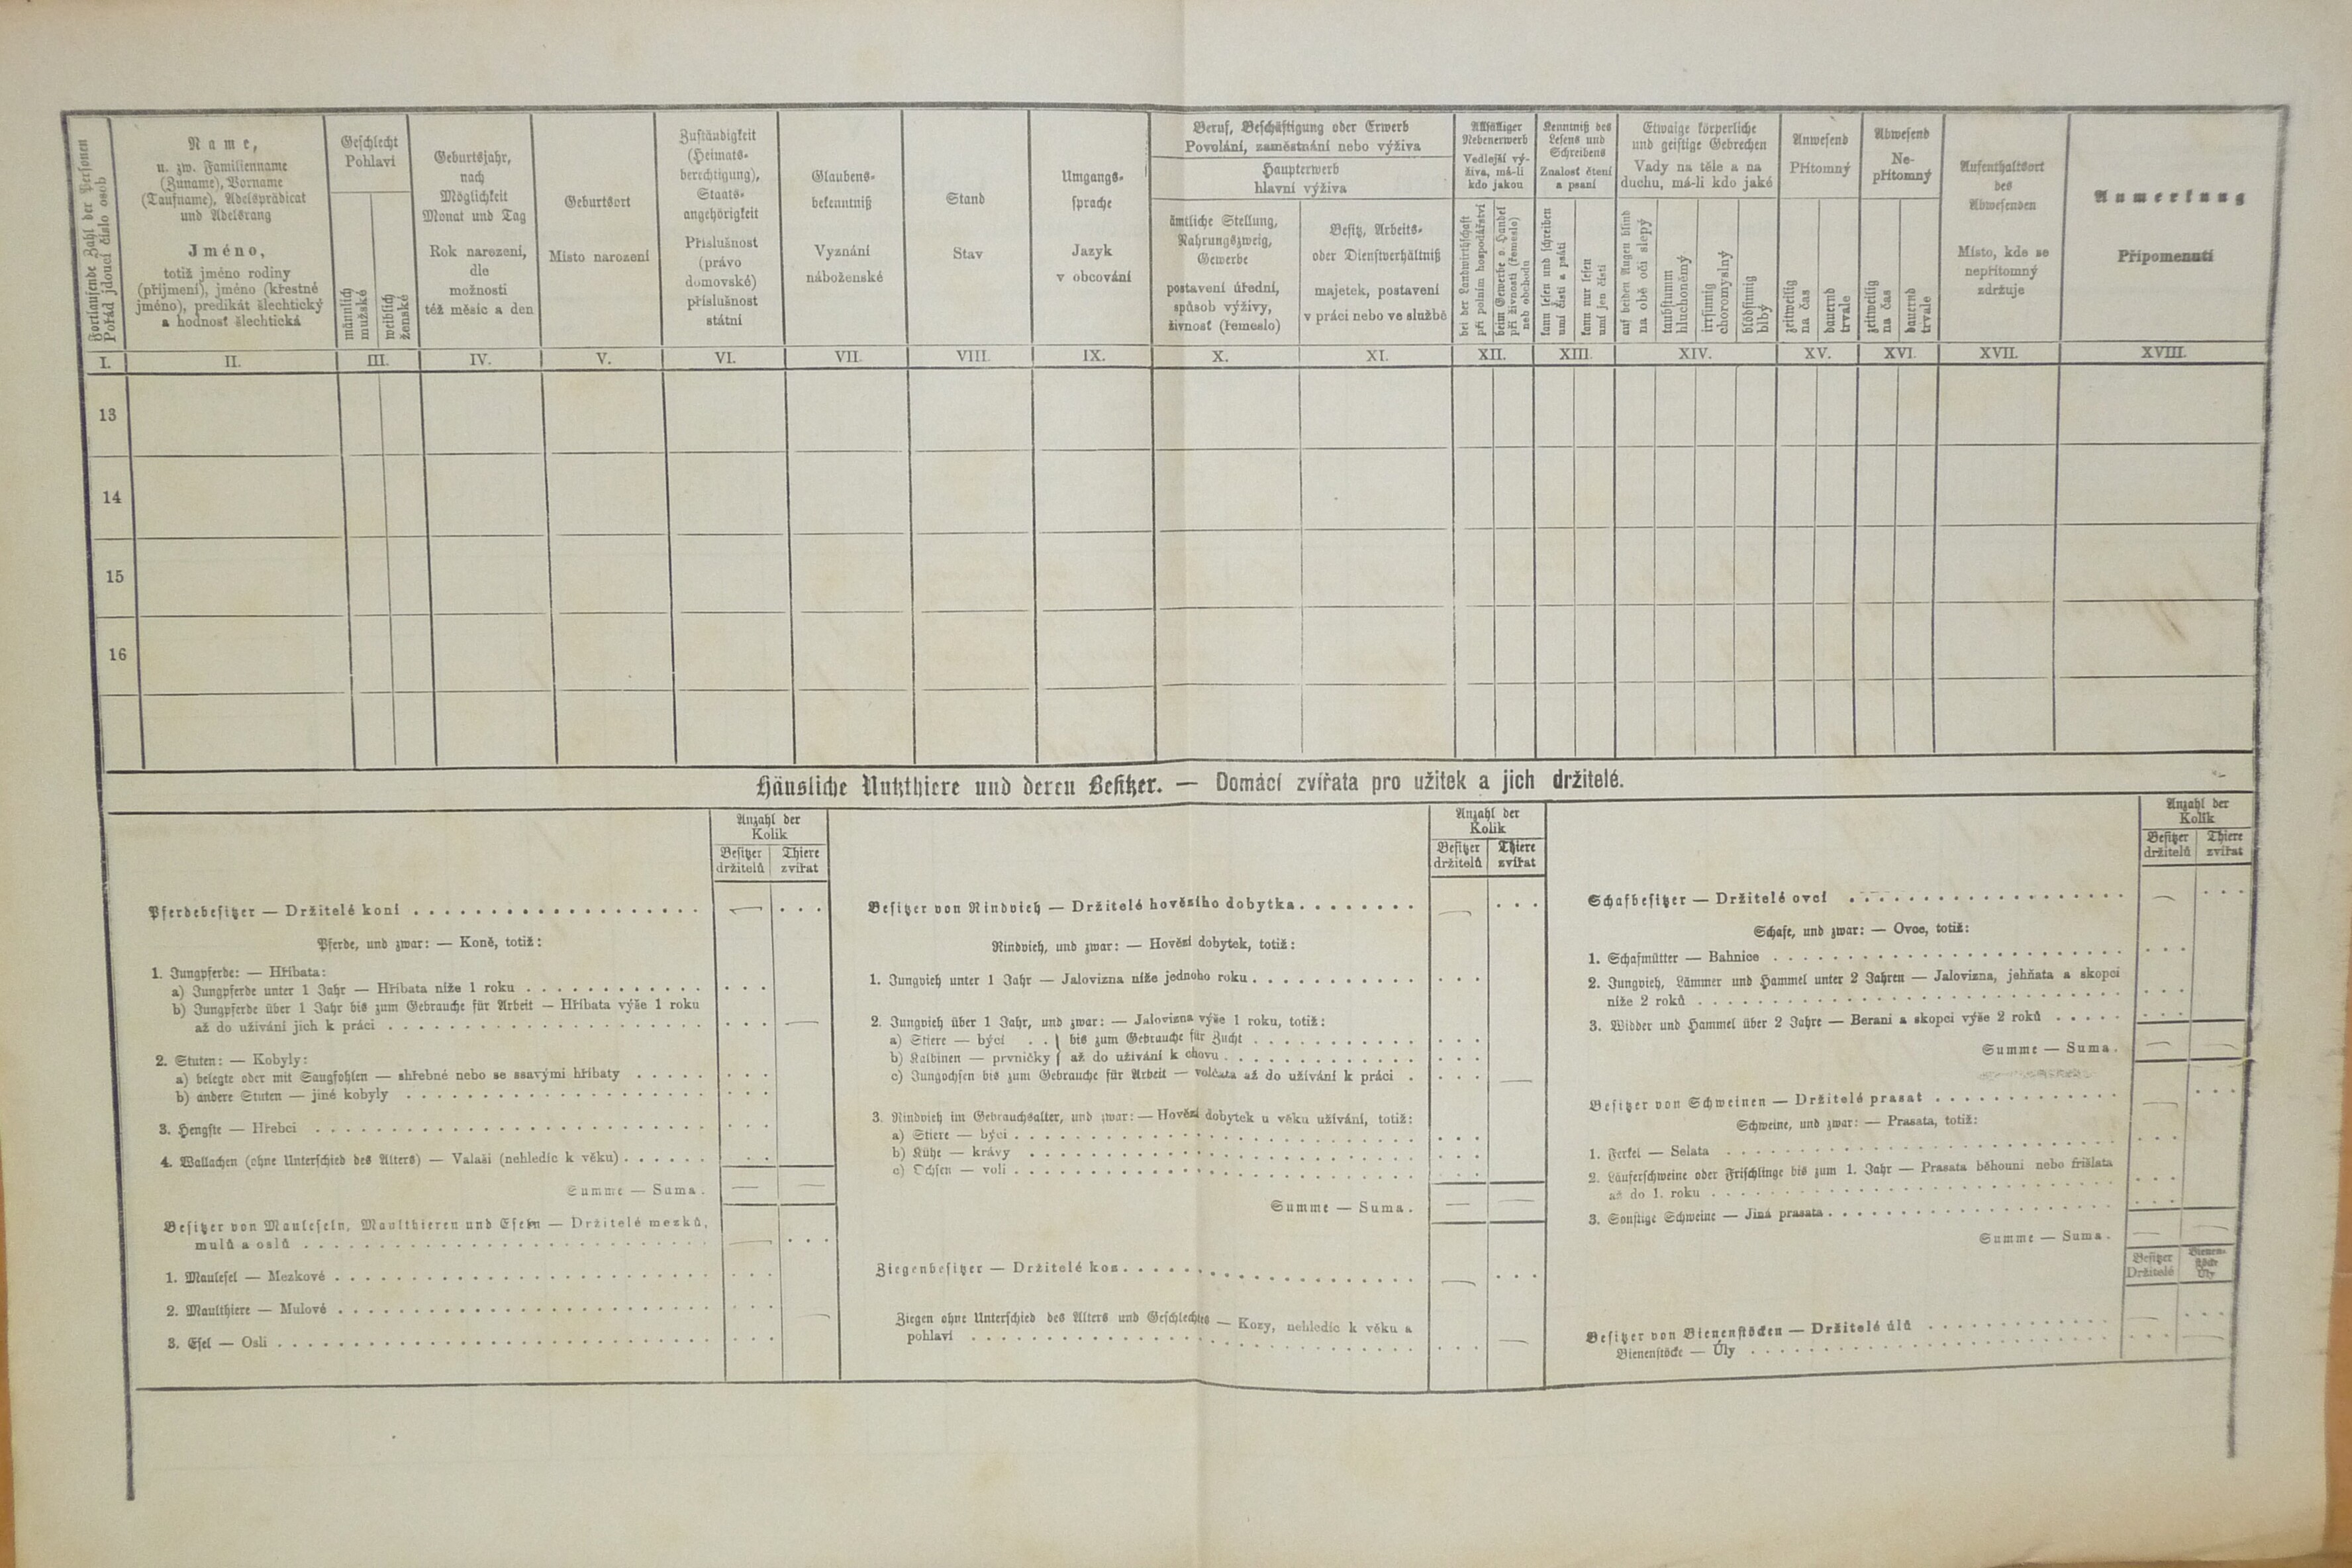 Fortlaufende Zahl der Personen
Pořád jdoucí číslo osob
Name,
u. zw. Familienname
(Zuname), Vorname
(Taufname), Adelsprädicat
und Adelsrang
Jméno,
totiž jméno rodiny
(příjmení), jméno (křestné
jméno), predikát šlechtický
a hodnosť šlechtická
Geschlecht
Pohlaví
männlich
mužské
weiblich
ženské
Geburtsjahr,
nach
Möglichkeit
Monat und Tag
Rok narození,
dle
možnosti
též měsíc a den
Geburtsort
Místo narození
Zuständigkeit
(Heimats-
berechtigung),
Staats-
angehörigkeit
Příslušnost
(právo
domovské)
příslušnost
státní
Glaubens-
bekenntniß
Vyznání
náboženské
Stand
Stav
Umgangs-
sprache
Jazyk
v obcování
Beruf, Beschäftigung oder Erwerb
Povolání, zaměstnání nebo výživa
Haupterwerb
hlavní výživa
ämtliche Stellung,
Nahrungszweig,
Gewerbe
postavení úřední,
spůsob výživy,
živnosť (řemeslo)
Besitz, Arbeits-
oder Dienstverhältniß
majetek, postavení
v práci nebo ve službě
Allfälliger
Nebenerwerb
Vedlejší vý-
živa, má-li
kdo jakou
bei der Landwirthschaft
při polním hospodářství
beim Gewerbe o. Handel
při živnosti (řemesle)
neb obchodu
Kenntniß des
Lesens und
Schreibens
Znalosť čtení
a psaní
kann lesen und schreiben
umí čísti a psáti
kann nur lesen
umí jen čísti
Etwaige körperliche
und geistige Gebrechen
Vady na těle a na
duchu, má-li kdo jaké
auf beiden Augen blind
na obě oči slepý
taubstumm
hluchoněmý
irrsinnig
choromyslný
blödsinnig
blbý
Anwesend
Přítomný
zeitweilig
na čas
dauernd
trvale
Abwesend
Ne-
přítomný
zeitweilig
na čas
dauernd
trvale
Aufenthaltsort
des
Abwesenden
Místo, kde se
nepřítomný
zdržuje
Anmerkung
Připomenutí
I. II. III. IV. V. VI. VII. VIII. IX. X. XI. XII. XIII. XIV. XV. XVI. XVII. XVIII.
13
14
15
16
Häusliche Nutzthiere und deren Besitzer. — Domácí zvířata pro užitek a jich držitelé.
Anzahl der
Kolik
Besitzer
držitelů
Thiere
zvířat
Pferdebesitzer — Držitelé koní . . . . . . . . . . . . . . . . . . — . . .
Pferde, und zwar: — Koně, totiž:
1. Jungpferde: — Hříbata:
a) Jungpferde unter 1 Jahr — Hříbata níže 1 roku . . . . . . . . . . . .
b) Jungpferde über 1 Jahr bis zum Gebrauche für Arbeit — Hříbata výše 1 roku
až do užívání jich k práci . . . . . . . . . . . . . . . . . . —
2. Stuten: — Kobyly:
a) belegte oder mit Saugfohlen — shřebné nebo se ssavými hříbaty . . . . .
b) andere Stuten — jiné kobyly . . . . . . . . . . . . . . . . . .
3. Hengste — Hřebci . . . . . . . . . . . . . . . . . .
4. Wallachen (ohne Unterschied des Alters) — Valaši (nehledíc k věku) . . . . . .
Summe — Suma. — —
Besitzer von Mauleseln, Maulthieren und Eseln — Držitelé mezků,
mulů a oslů . . . . . . . . . . . . . . . . . . — . . .
1. Maulesel — Mezkové . . . . . . . . . . . . . . . . . .
2. Maulthiere — Mulové . . . . . . . . . . . . . . . . . . —
3. Esel — Osli . . . . . . . . . . . . . . . . . .
Anzahl der
Kolik
Besitzer
držitelů
Thiere
zvířat
Besitzer von Rindvieh — Držitelé hovězího dobytka . . . . . . . . — . . .
Rindvieh, und zwar: — Hovězí dobytek, totiž:
1. Jungvieh unter 1 Jahr — Jalovizna níže jednoho roku . . . . . . . . . . .
2. Jungvieh über 1 Jahr, und zwar: — Jalovizna výše 1 roku, totiž:
a) Stiere — býci . . } bis zum Gebrauche für Zucht . . . . . . . . . . .
b) Kalbinen — prvničky } až do užívání k chovu . . . . . . . . . . .
c) Jungochsen bis zum Gebrauche für Arbeit — volčata až do užívání k práci . —
3. Rindvieh im Gebrauchsalter, und zwar: — Hovězí dobytek u věku užívání, totiž:
a) Stiere — býci . . . . . . . . . . . . . . . . . .
b) Kühe — krávy . . . . . . . . . . . . . . . . . .
c) Ochsen — voli . . . . . . . . . . . . . . . . . .
Summe — Suma. — —
Ziegenbesitzer — Držitelé koz . . . . . . . . . . . . . . . . — . . .
Ziegen ohne Unterschied des Alters und Geschlechtes — Kozy, nehledíc k věku a
pohlaví . . . . . . . . . . . . . . . . . . —
Anzahl der
Kolik
Besitzer
držitelů
Thiere
zvířat
Schafbesitzer — Držitelé ovcí . . . . . . . . . . . . . . . . — . . .
Schafe, und zwar: — Ovce, totiž:
1. Schafmütter — Bahnice . . . . . . . . . . . . . . . . . .
2. Jungvieh, Lämmer und Hammel unter 2 Jahren — Jalovizna, jehňata a skopci
níže 2 roků . . . . . . . . . . . . . . . . . .
3. Widder und Hammel über 2 Jahre — Berani a skopci výše 2 roků . . . . .
Summe — Suma. — —
Besitzer von Schweinen — Držitelé prasat . . . . . . . . . . . . — . . .
Schweine, und zwar: — Prasata, totiž:
1. Ferkel — Selata . . . . . . . . . . . . . . . . . .
2. Läuferschweine oder Frischlinge bis zum 1. Jahr — Prasata běhouni nebo frišlata
až do 1. roku . . . . . . . . . . . . . . . . . .
3. Sonstige Schweine — Jiná prasata . . . . . . . . . . . . . . . .
Summe — Suma. — —
Besitzer
Držitelé
Bienen-
stöcke
Úly
Besitzer von Bienenstöcken — Držitelé úlů . . . . . . . . . . . — . . .
Bienenstöcke — Úly . . . . . . . . . . . . . . . . . . —